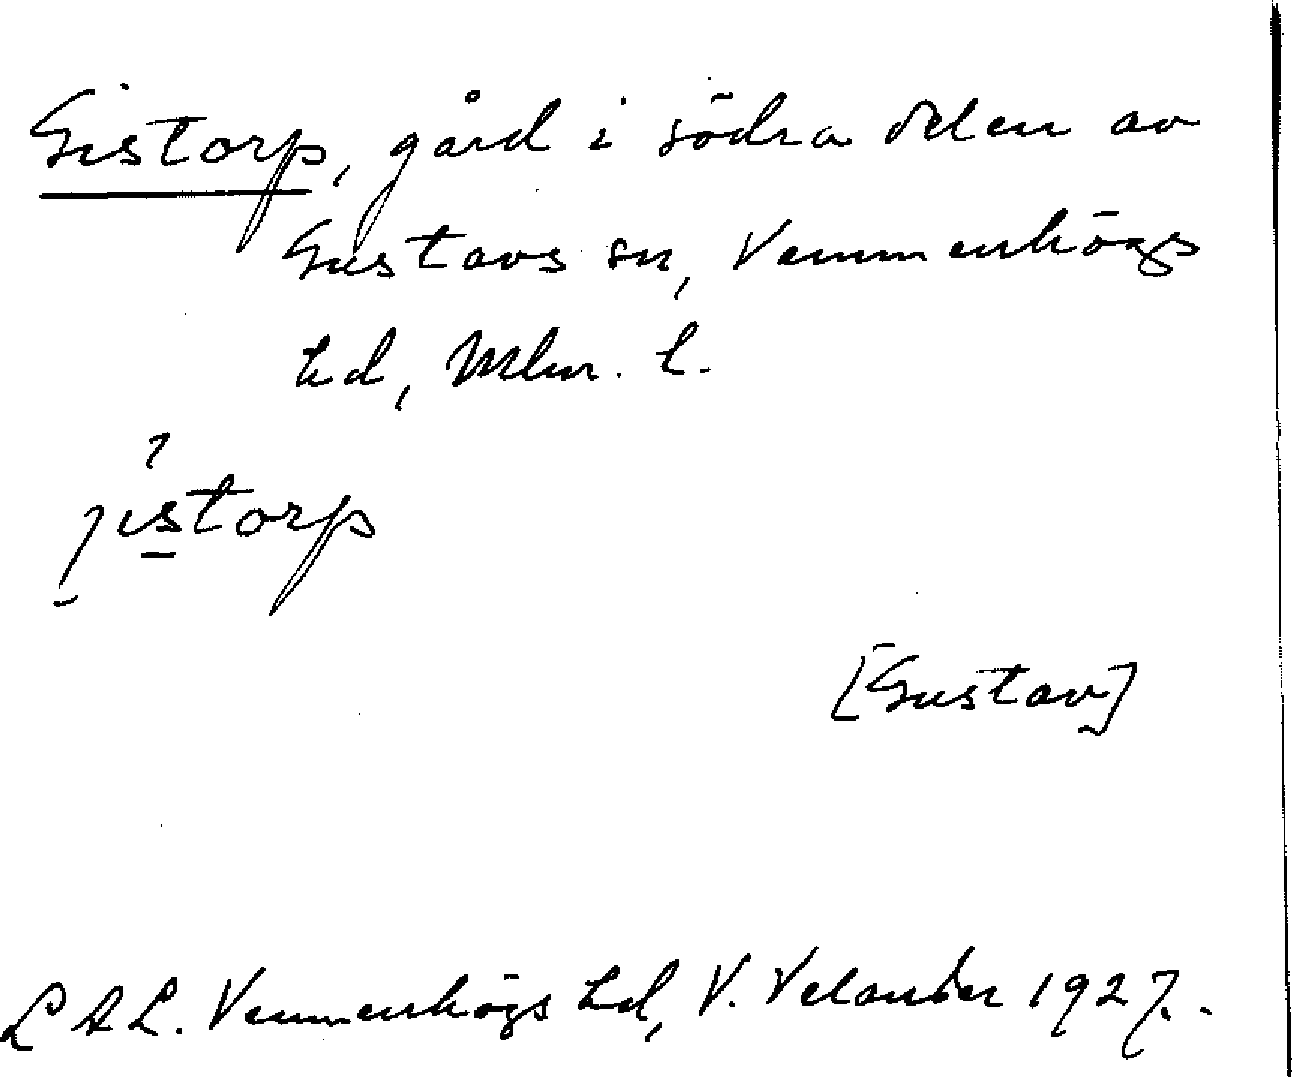 Gistorp, gård i södra delen av
Gustavs sn, Vemmenhögs
hd, Mlm. l.
jistorp
[Gustav]
L A L. Vemmenhögs hd, V. Velander 1927.